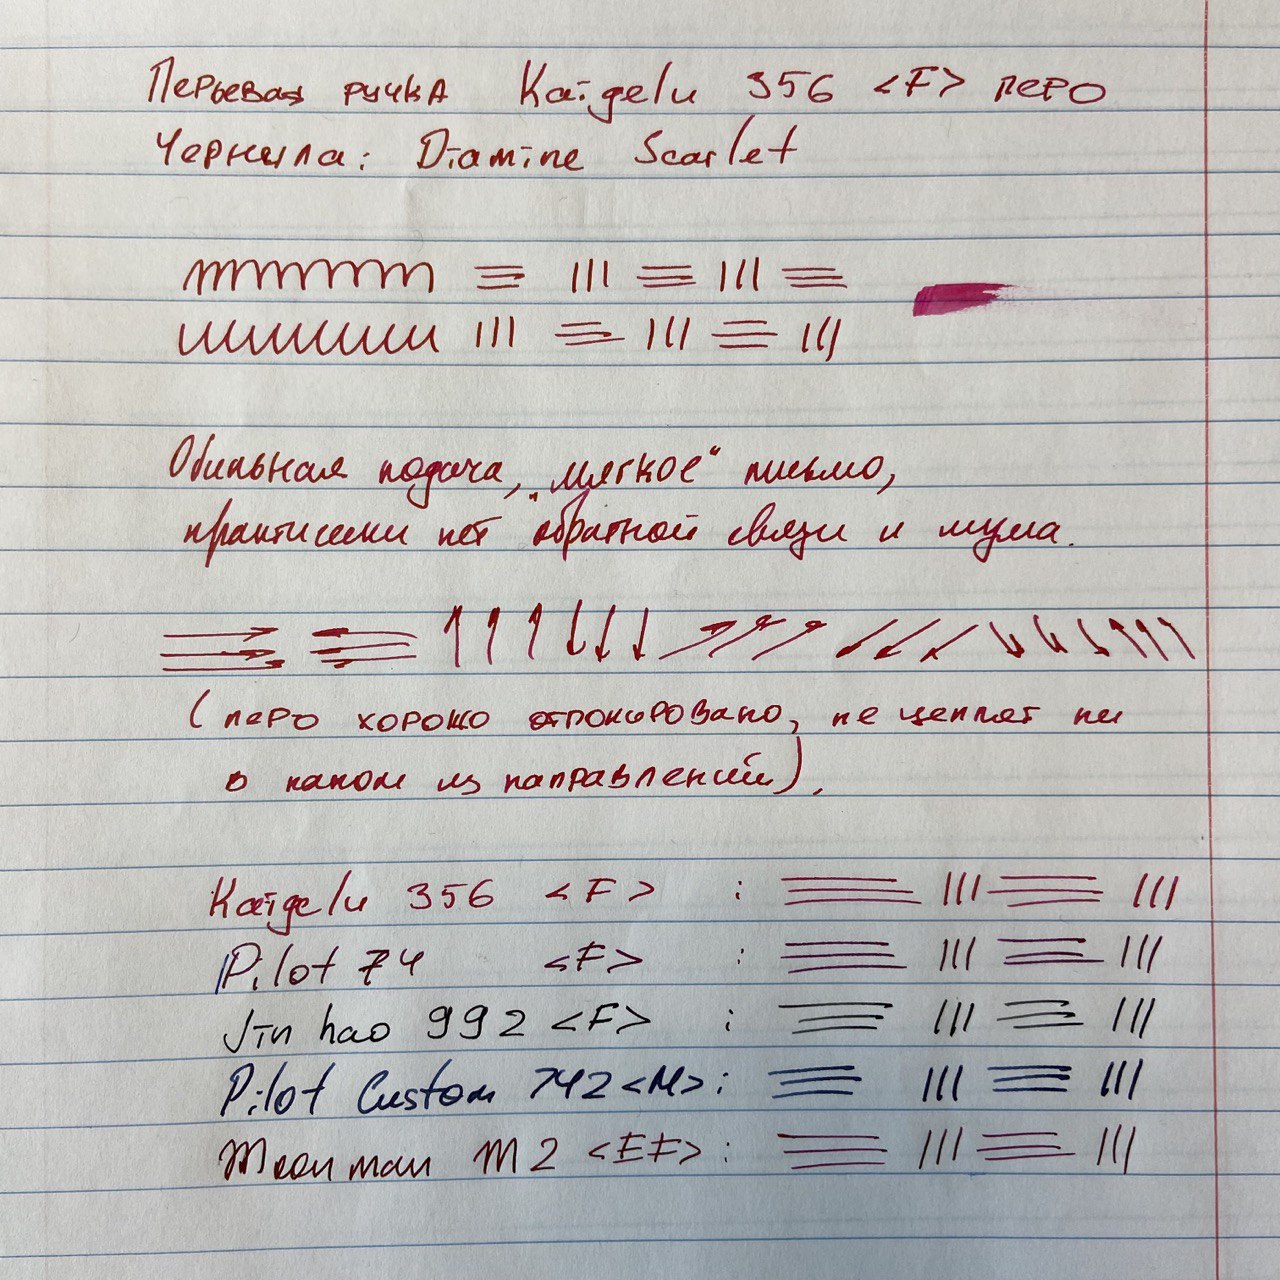 Перьевая ручка Kaigelu 356 <F> перо
Чернила: Diamine Scarlet
Обильная подача, „мягкое“ письмо,
практически нет обратной связи и шума.
(перо хорошо отполировано, не цепляет ни
в каком из направлений).
Kaigelu 356 <F> :
Pilot 74 <F> :
Jinhao 992 <F> :
Pilot Custom 742 <M> :
Moonman M2 <EF> :